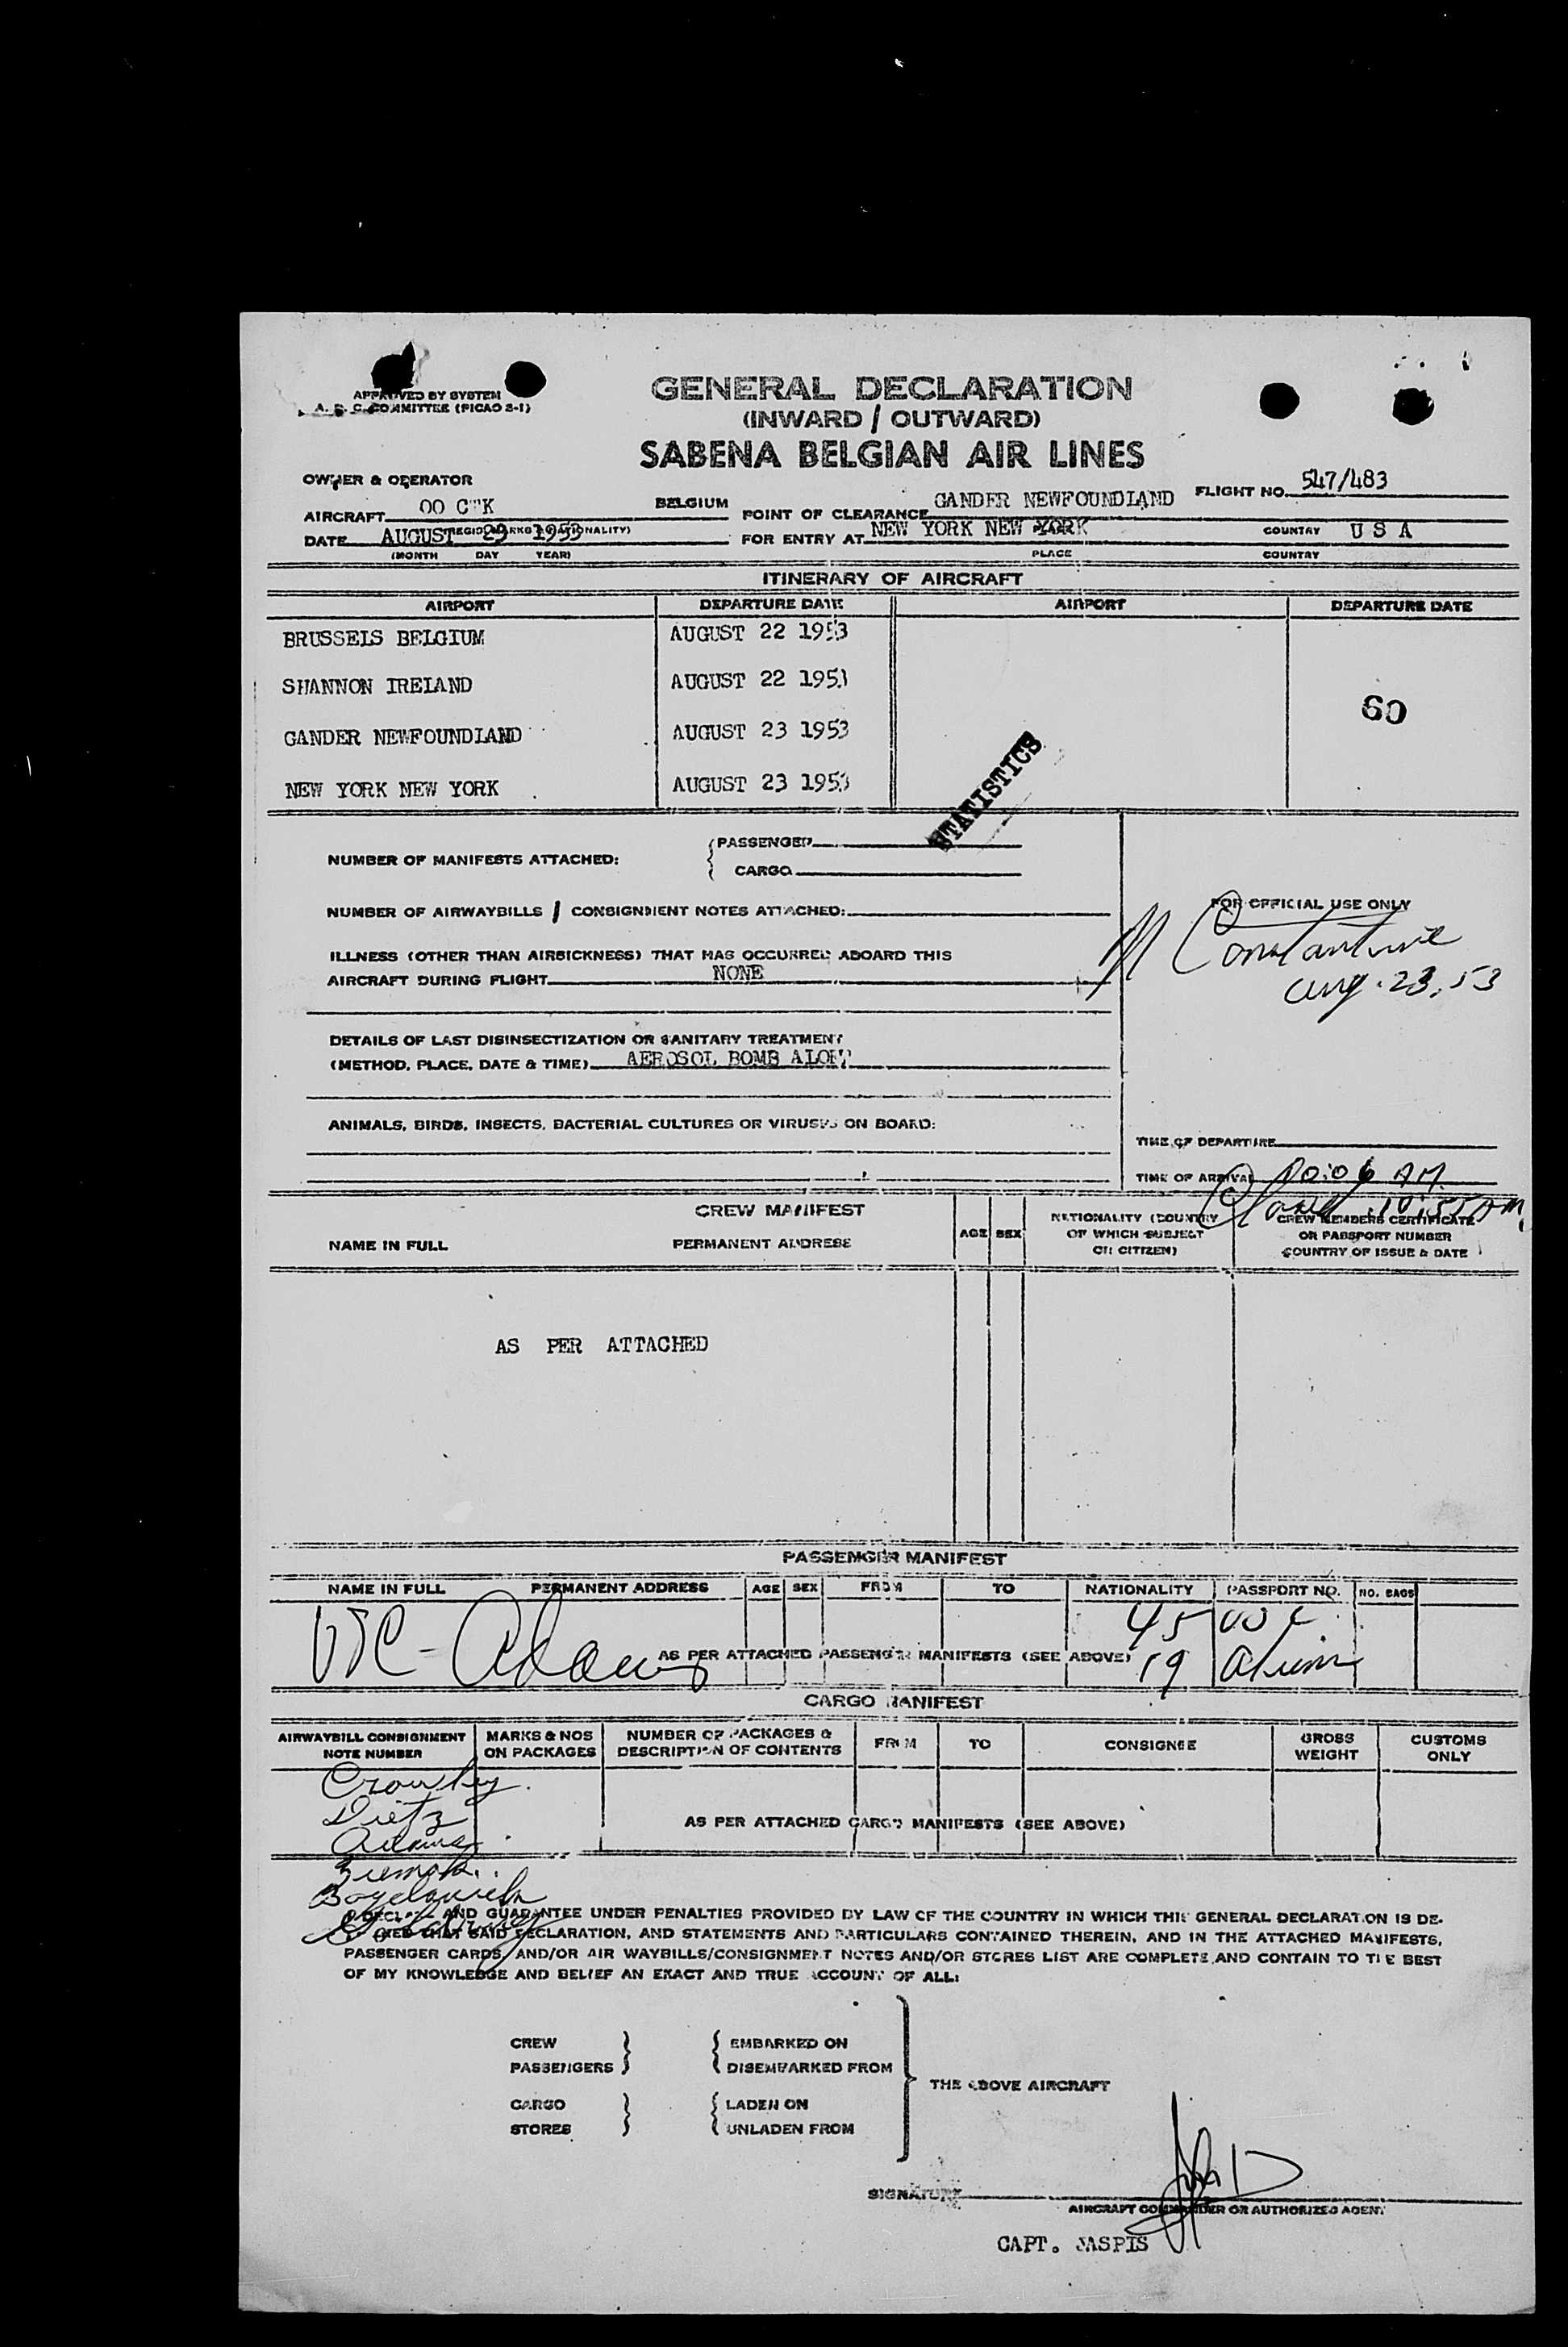 APPROVED BY SYSTEM
A. P. C. COMMITTEE (PICAO 2-1)
GENERAL DECLARATION
(INWARD / OUTWARD)
SABENA BELGIAN AIR LINES
OWNER & OPERATOR
FLIGHT NO. 547/483
AIRCRAFT OO C K BELGIUM POINT OF CLEARANCE GANDER NEWFOUNDLAND
DATE AUGUST 23 1953 FOR ENTRY AT NEW YORK NEW YORK COUNTRY U S A
(MONTH DAY YEAR) PLACE COUNTRY
ITINERARY OF AIRCRAFT
AIRPORT DEPARTURE DATE AIRPORT DEPARTURE DATE
BRUSSELS BELGIUM AUGUST 22 1953
SHANNON IRELAND AUGUST 22 1953
60
GANDER NEWFOUNDLAND AUGUST 23 1953
NEW YORK NEW YORK AUGUST 23 1953
STATISTICS
NUMBER OF MANIFESTS ATTACHED: PASSENGER
CARGO
NUMBER OF AIRWAYBILLS / CONSIGNMENT NOTES ATTACHED:
FOR OFFICIAL USE ONLY
Constantine
Aug. 23, 53
ILLNESS (OTHER THAN AIRSICKNESS) THAT HAS OCCURRED ABOARD THIS
AIRCRAFT DURING FLIGHT NONE
DETAILS OF LAST DISINSECTIZATION OR SANITARY TREATMENT
(METHOD, PLACE, DATE & TIME) AEROSOL BOMB ALOFT
ANIMALS, BIRDS, INSECTS, BACTERIAL CULTURES OR VIRUSES ON BOARD:
TIME OF DEPARTURE
TIME OF ARRIVAL 10:06 AM
10:55 AM
CREW MANIFEST
NAME IN FULL PERMANENT ADDRESS AGE SEX NATIONALITY (COUNTRY OF WHICH SUBJECT OR CITIZEN) CREW MEMBERS CERTIFICATE OR PASSPORT NUMBER COUNTRY OF ISSUE & DATE
AS PER ATTACHED
PASSENGER MANIFEST
NAME IN FULL PERMANENT ADDRESS AGE SEX FROM TO NATIONALITY PASSPORT NO. NO. BAGS
45 USC
Adams
AS PER ATTACHED PASSENGER MANIFESTS (SEE ABOVE) 19 Aliens
CARGO MANIFEST
AIRWAYBILL CONSIGNMENT NOTE NUMBER MARKS & NOS ON PACKAGES NUMBER OF PACKAGES & DESCRIPTION OF CONTENTS FROM TO CONSIGNEE GROSS WEIGHT CUSTOMS ONLY
Crowley
Dietz
Adams
AS PER ATTACHED CARGO MANIFESTS (SEE ABOVE)
I DECLARE AND GUARANTEE UNDER PENALTIES PROVIDED BY LAW OF THE COUNTRY IN WHICH THIS GENERAL DECLARATION IS DE-
THAT SAID DECLARATION, AND STATEMENTS AND PARTICULARS CONTAINED THEREIN, AND IN THE ATTACHED MANIFESTS,
PASSENGER CARDS, AND/OR AIR WAYBILLS/CONSIGNMENT NOTES AND/OR STORES LIST ARE COMPLETE AND CONTAIN TO THE BEST
OF MY KNOWLEDGE AND BELIEF AN EXACT AND TRUE ACCOUNT OF ALL:
CREW EMBARKED ON
PASSENGERS DISEMBARKED FROM
THE ABOVE AIRCRAFT
CARGO LADEN ON
STORES UNLADEN FROM
SIGNATURE
AIRCRAFT COMMANDER OR AUTHORIZED AGENT
CAPT. JASPIS